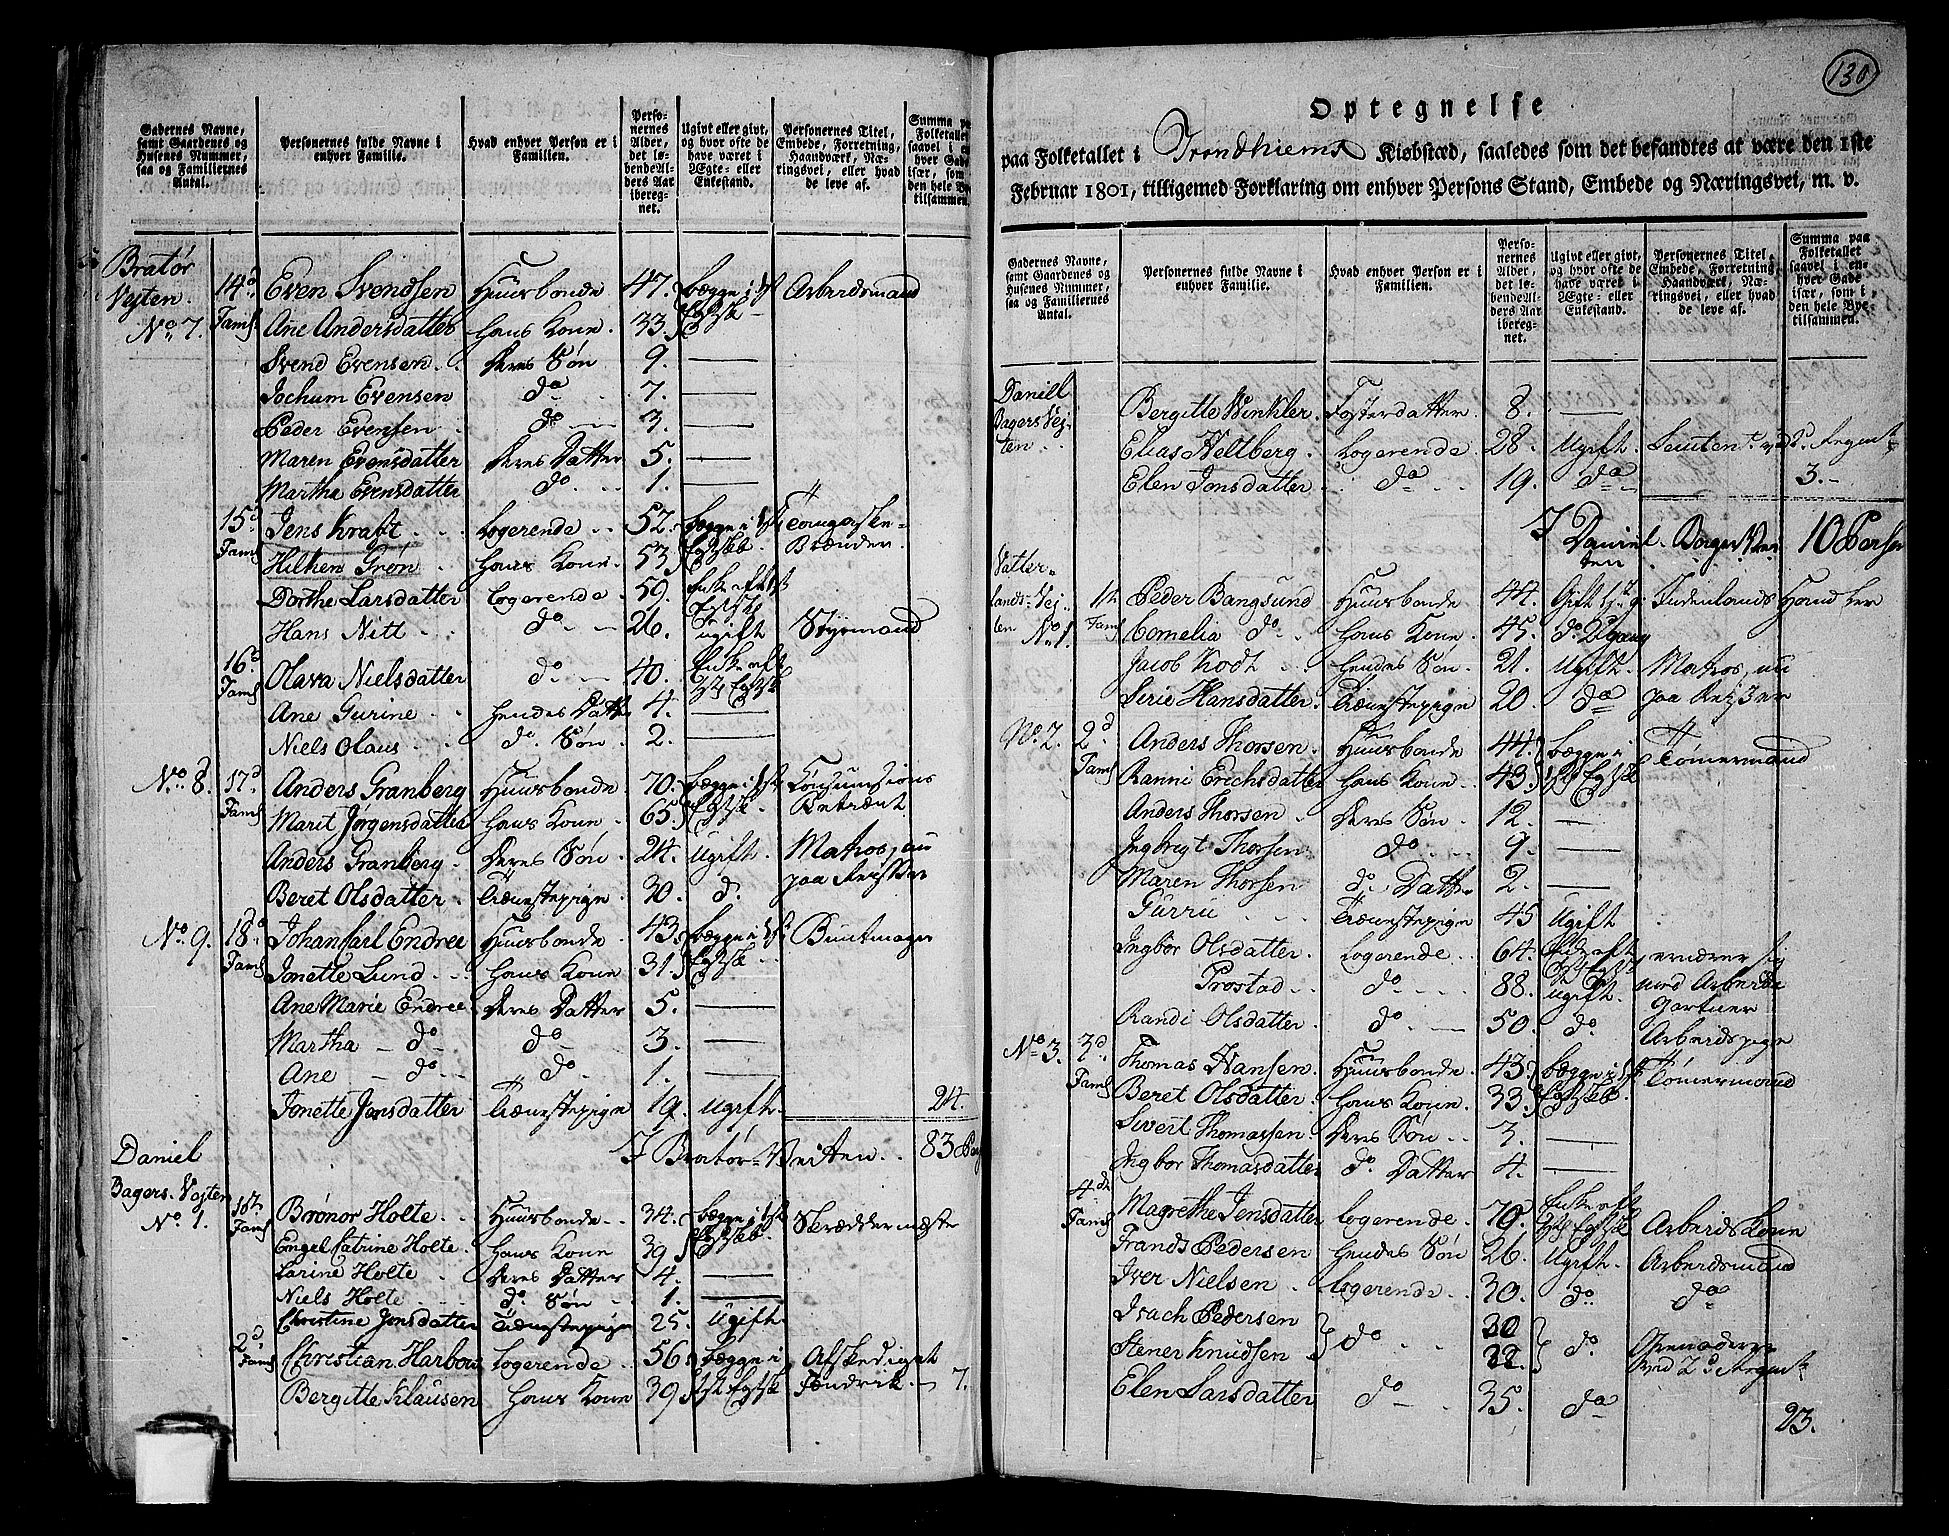 Gadernes Navne, samt Gaardenes og Husenes Nummer, saa og Familiernes Antal.
Personernes fulde Navne i enhver Familie.
Hvad enhver Person er i Familien.
Personernes Alder, det løbende Alders Aar iberegnet.
Ugivt eller givt, og hvor ofte de have været i Ægte- eller Enkestand.
Personernes Titel, Embede, Forretning, Haandværk, Næringsvei, eller hvad de leve af.
Summa paa Folketallet
Bratør Vejten No. 7. 14d Faml Even Svendsen Huusbonde 47. begge i 1st Arbeidsmand
Ane Andersdatter hans Kone. 33. Egtsk
Svend Evensen. deres Søn 9. —
Jochum Evensen do 7. —
Peder Evensen do 3. —
Maren Evensdatter deres Datter 5. —
Martha Evensdatter do. 1. —
15d Faml Jens Kraft logerende 52. begge i
Hilken Grøn hans Kone. 53. Egtsk. Brænder.
Dorthe Larsdatter logerende 59. Enke eft 1st Egtsk
Hans Nitt do. 26. ugift Styrmand
16d Faml Olava Nielsdatter do. 40. Enke eft Egtsk
Ane Gurine hendes Datt. 4. —
Niels Olaus do. Søn 2. —
No. 8. 17d Faml Anders Granberg Huusbonde 70. begge i 1st Consumtions
Marit Jørgensdatter hans Kone 65. Egtsk. Betient
Anders Granberg. deres Søn 24. Ugift. Matros, nu
Beret Olsdatter. Tienestepige 30. do. paa
No. 9. 18d Faml Johan Carl Endree Huusbonde 43. begge i 1st Buntmager
Jonette Lund hans Kone 31. Egtsk
Ane Marie Endree deres Datter 5. —
Martha — do do 3. —
Ane — do do. 1. —
Jonette Jonsdatter Tienestepige 19. Ugift. 24.
I Bratør-Veiten 83 Per
Daniel Bagers. Vejten No. 1. 1ste Faml Brønor Holte Huusbonde 34. begge i 1st Skræddermester
Engel Catrine Holte. hans Kone 39 Egtsk.
Carine Holte deres Datter 4. —
Niels Holte do. Søn 1. —
Christine Jonsdatter Tienestepige 25. Ugift.
2d Faml Christian Harbou logerende 56 begge i Afskediget
Bergitte Klausen hans Kone 39 1st Egtsk Fendrik — 7.
130
Optegnelse
paa Folketallet i Trondhiems Kiøbstæd, saaledes som det befandtes at være den 1ste
Februar 1801, tilligemed Forklaring om enhver Persons Stand, Embede og Næringsvei, m. v.
Gadernes Navne, samt Gaardenes og Husenes Nummer, saa og Familiernes Antal.
Personernes fulde Navne i enhver Familie.
Hvad enhver Person er i Familien.
Personernes Alder, det løbende Alders Aar iberegnet.
Ugivt eller givt, og hvor ofte de have været i Ægte- eller Enkestand.
Personernes Titel, Embede, Forretning, Haandværk, Næringsvei, eller hvad de leve af.
Summa paa Folketallet saavel i enhver Gade især, som i den hele Bye tilsammen.
Daniel Bagers Vejten. Bergitte Winkler. Fosterdatter. 8. —
Elias Heltberg. Logerende 28. Ugift.
Elen Jonsdatter do 19. do 3.
I Daniel Bager Veiten 10 Persen
Vatterlands-Vejten No. 1. 1te Faml Peder Bangsund Huusbonde 44. Gift 1ste g. Indenlands Handler
Cornelia do. hans Kone. 45. do. 2 gang
Jacob Kodt hendes Søn. 21. Ugift. Matros, nu
Serie Hansdatter. Tienestepige 20. do paa
No. 2. 2d Faml Anders Thorsen Huusbonde 44. begge i Tømermand
Ranni Erichsdatter hans Kone. 43. Egtsk
Anders Thorsen deres Søn 12. —
Ingbrigt Thorsen do. 9. —
Maren Thorsen do. Datter 2. —
Gurru Tienestepige 45 Ugift
Ingbør Olsdatter logerende 64. ernærer sig
Prostad do. 88. ugift. med Arbeide
Randi Olsdatter do. 50. do. Arbeidspige
No. 3. 3d Faml Thomas Hansen Huusbonde 43. begge i 1st Tømermand
Beret Olsdatter hans Kone. 33. Egtskab.
Sivert Thomassen deres Søn 7. —
Ingbør Thomasdatter do. Datter 4. —
4de Faml Magrethe Jensdatter logerende 70. Enke eft Egtsk Arbeids Kone
Frands Pedersen hendes Søn 26. Ugift. Arbeidsmand
Iver Nielsen logerende. 30. do. do
Isach Pedersen 30
Stener Knudsen do 32. do.
Elen Larsdatter do 35. do 23.